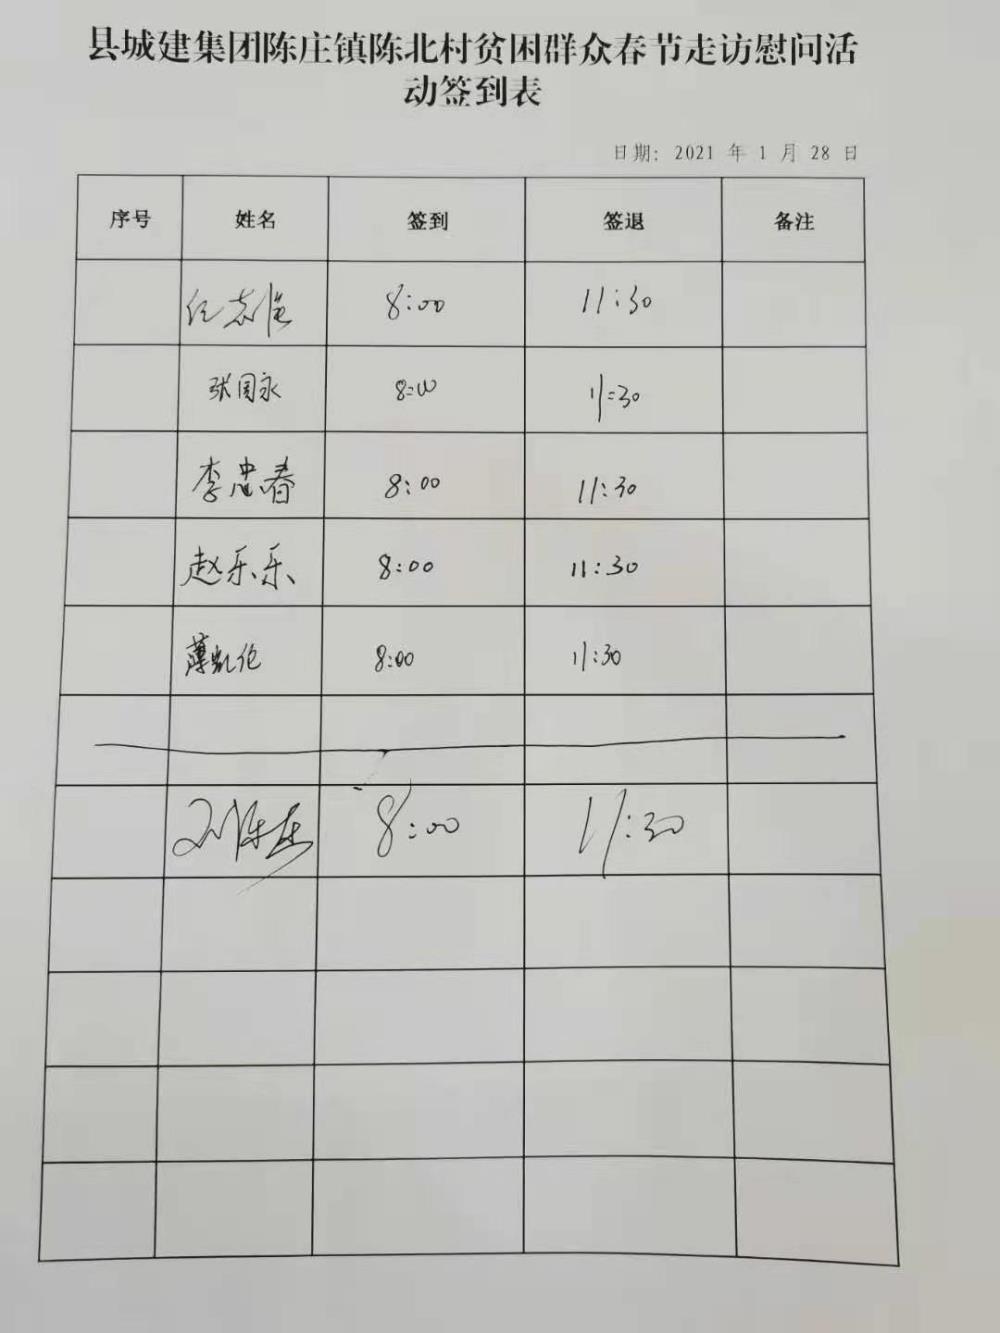 县城建集团陈庄镇陈北村贫困群众春节走访慰问活
动签到表
日期: 2021 年 1 月 28 日
序号 姓名 签到 签退 备注
8:00 11:30
张国永 8:00 11:30
李忠春 8:00 11:30
赵乐乐 8:00 11:30
薄凯伦 8:00 11:30
8:00 11:30